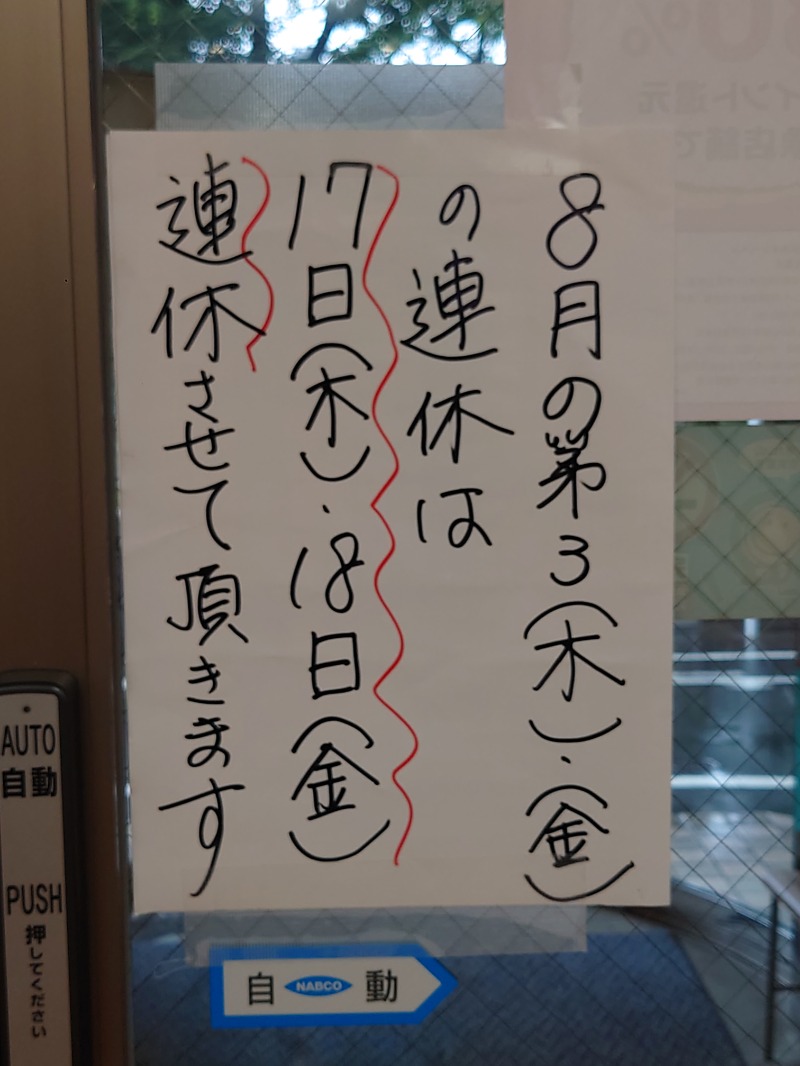 8月の第3(木)・(金)
の連休は
17日(木)・18日(金)
連休させて頂きます
AUTO
自動
PUSH
押してください
自 NABCO 動